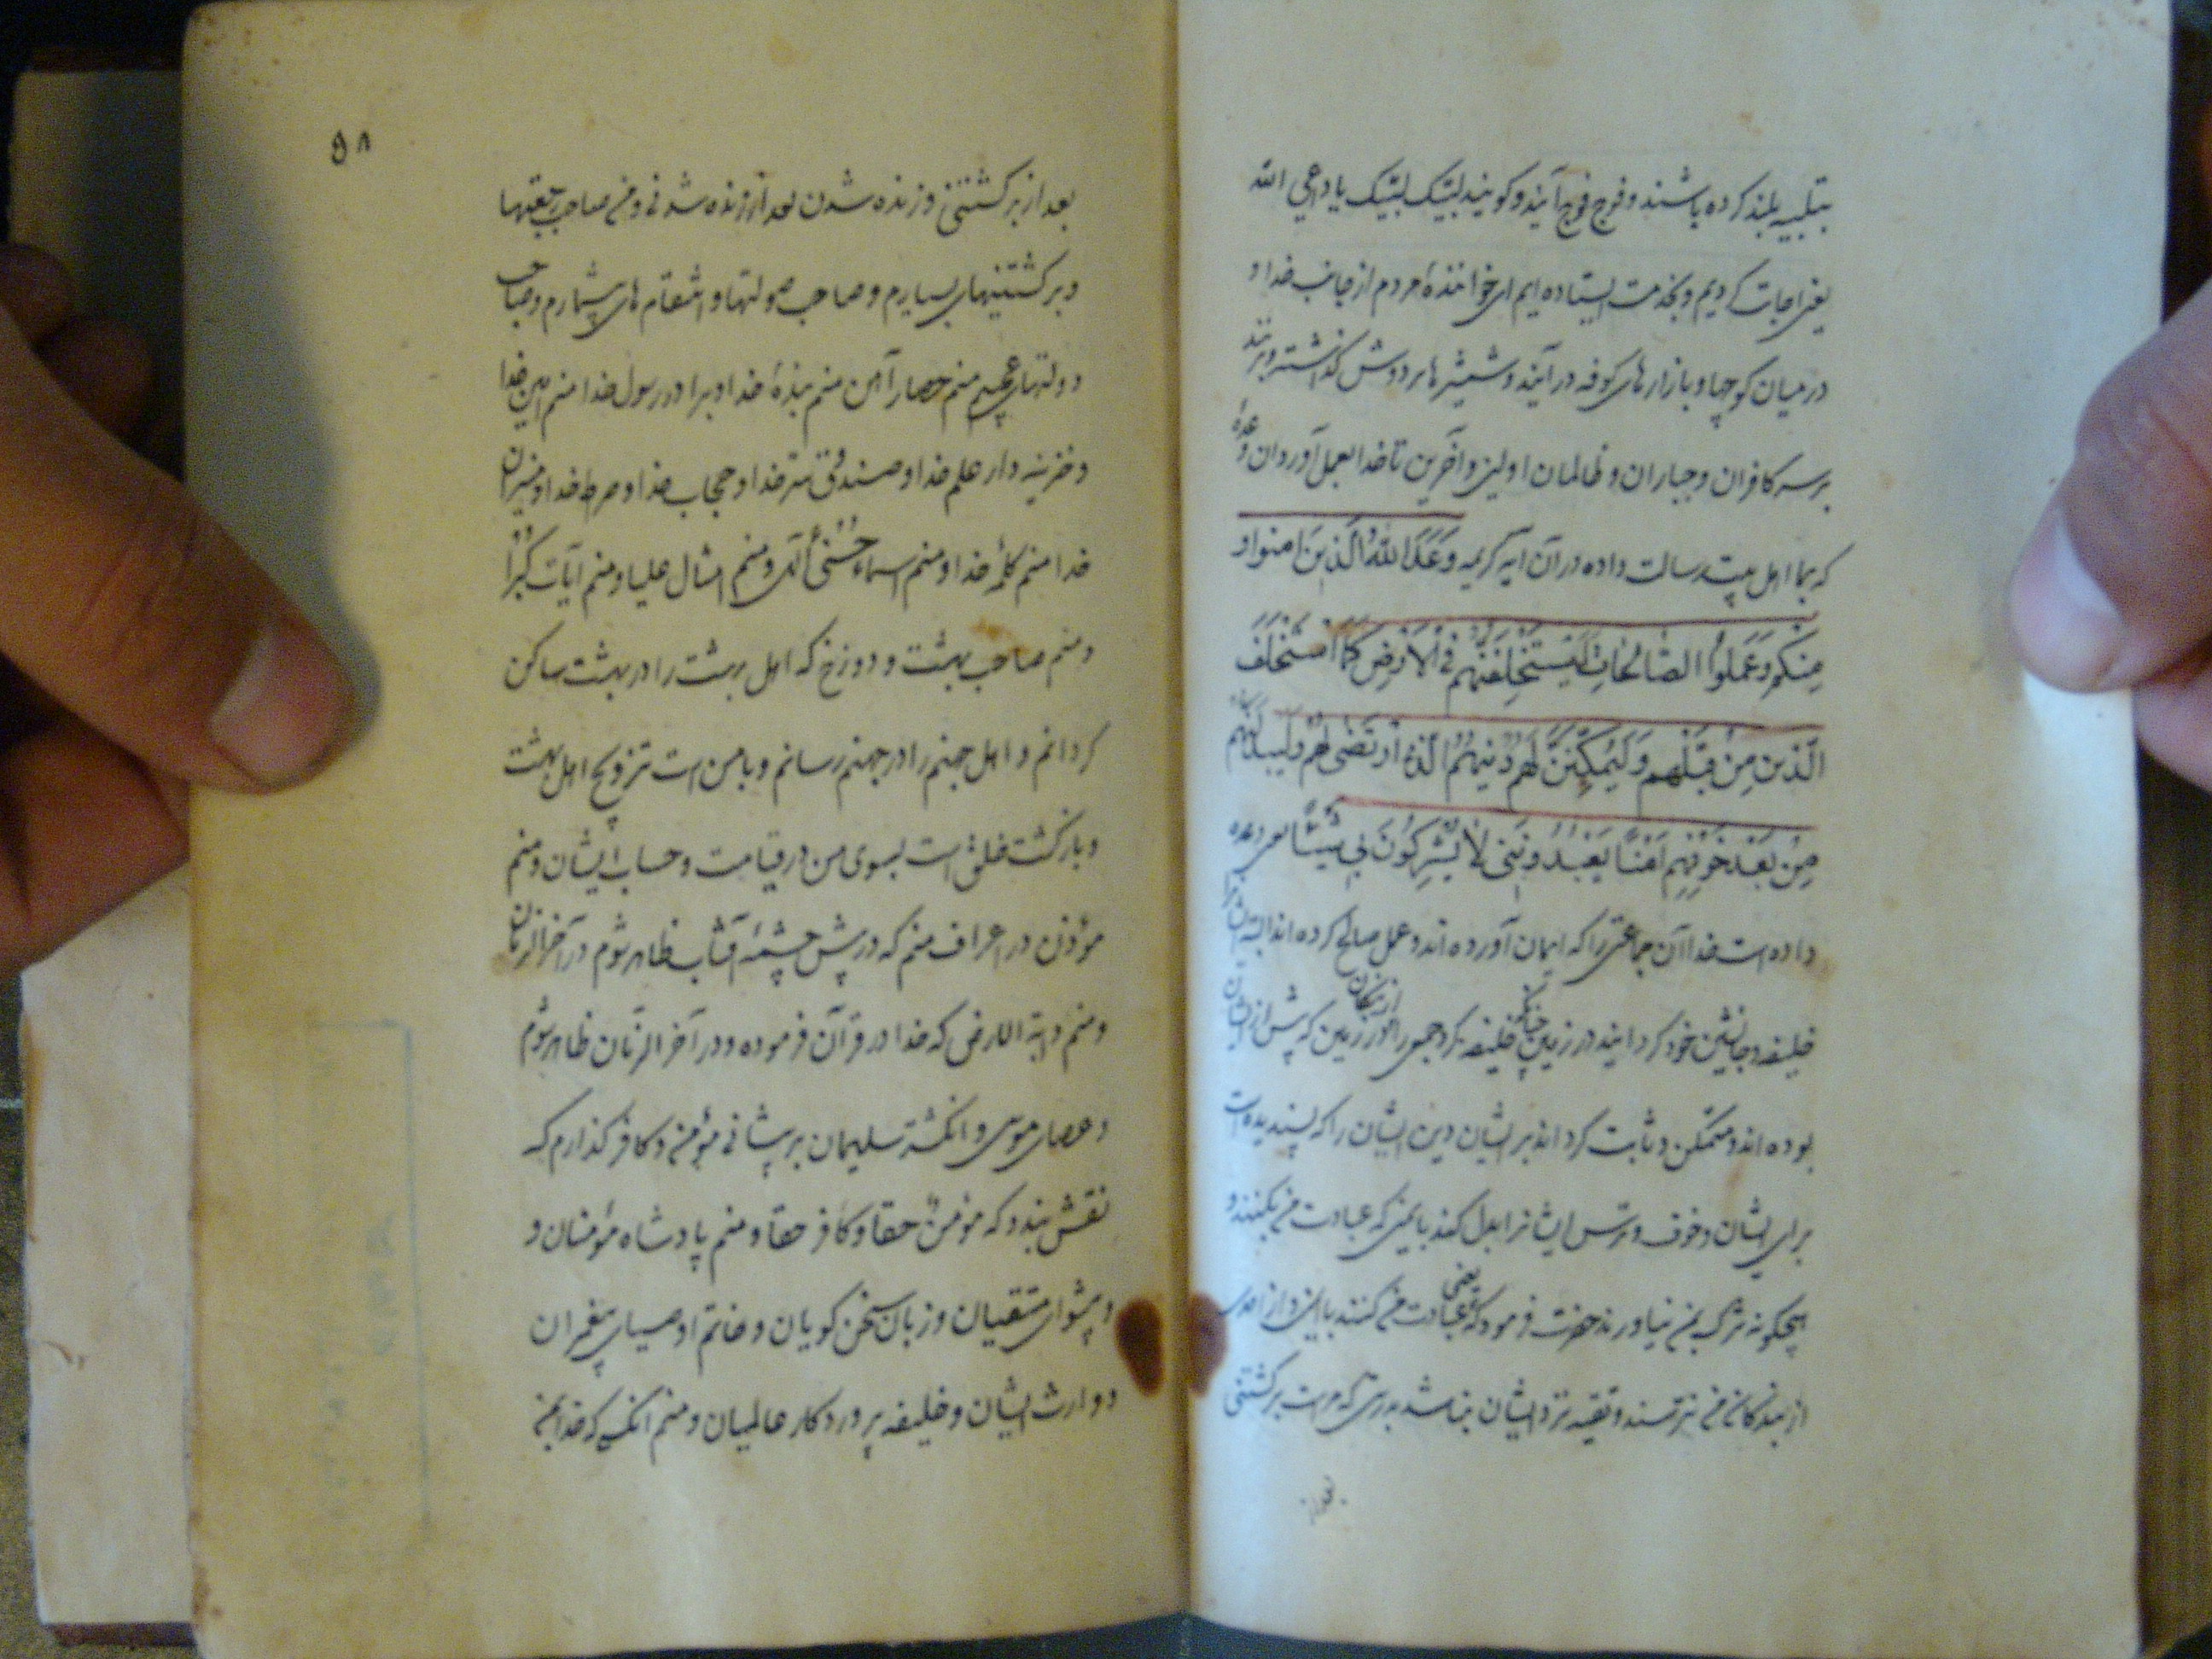 بتلبیه بلند کرده باشند و فوج فوج آیند و کویند لبیک لبیک یا داعی الله
یعنی اجابت کردیم و بخدمت ایستاده ایم ای خوانندهٔ مردم از جانب خدا و
در میان کوچها و بازارهای کوفه در آیند و شمشیرها بر دوش کذاشته و بزنند
بر سر کافران و جباران و ظالمان اولین و آخرین تا خدا بعمل آورد آن وعدهٔ
که بما اهل بیت رسالت داده در آن آیه کریمه وَعَدَ اللهُ الَّذِینَ امنوا و
مِنْکُم وَعَمِلُوا الصَّالِحَاتِ لَیَسْتَخْلِفَنَّهُم فِی الْاَرْضِ کَمَا اسْتَخْلَفَ
الَّذِینَ مِنْ قَبْلِهِم وَلَیُمَکِّنَنَّ لَهُم دِینَهُمُ الَّذِی ارْتَضَی لَهُم وَلَیُبَدِّلَنَّهُم
مِنْ بَعْدِ خَوْفِهِم اَمْنًا یَعْبُدُونَنِی لَا یُشْرِکُونَ بِی شَیْئًا یعنی وعده
داده است خدا آن جماعتی را که ایمان آورده اند و عمل صالح کرده اند البته ایشانرا
خلیفه و جانشین خود کرداند در زمین چنانکه خلیفه کرد جمعی را در زمین که پیش از ایشان
بوده اند و متمکن و ثابت کرداند بر ایشان دین ایشان را که پسندیده است
برای ایشان و خوف و ترس ایشانرا بدل کند بایمنی که عبادت من بکنند و
هیچکونه شرک بمن نیاورند حضرت فرمود که یعنی عبادت من کنند باایمنی و از احدی
از بندکان من نترسند و تقیه نزد ایشان نباشد بدرستی که مراست برکشتنی
۵۸
بعد از برکشتنی و زنده شدن بعد از زنده شدنی و منم صاحب رجعتها
و برکشتنیهای بسیارم و صاحب صولتها و انتقام های بیشمارم و صاحب
دولتهای عجیب منم حصار آهن منم بندهٔ خدا و برادر رسول خدا منم امین خدا
و خزینه دار علم خدا و صندوق سرّ خدا و حجاب خدا و صراط خدا و میزان
خدا منم کلمهٔ خدا و منم اسماء حسنی الهی و منم امثال علیا و منم آیات کبرا
و منم صاحب بهشت و دوزخ که اهل بهشت را در بهشت ساکن
کردانم و اهل جهنم را در جهنم رسانم و با من است تزویج اهل بهشت
و بازکشت خلق است بسوی من در قیامت و حساب ایشان و منم
مؤذن در اعراف منم که در پیش چشمه آفتاب ظاهر شوم در آخر الزمان
و منم دابة الارض که خدا در قرآن فرموده و در آخر الزمان ظاهر شوم
و عصای موسی و انکشتر سلیمان بر پیشانی مؤمن و کافر کذارم که
نقش بندد که مؤمن حقا و کافر حقا و منم پادشاه مؤمنان و
و پیشوای متقیان و زبان سخن کویان و خاتم اوصیای پیغمبران
و وارث ایشان و خلیفه پروردکار عالمیان و منم انکسی که خدا بمن